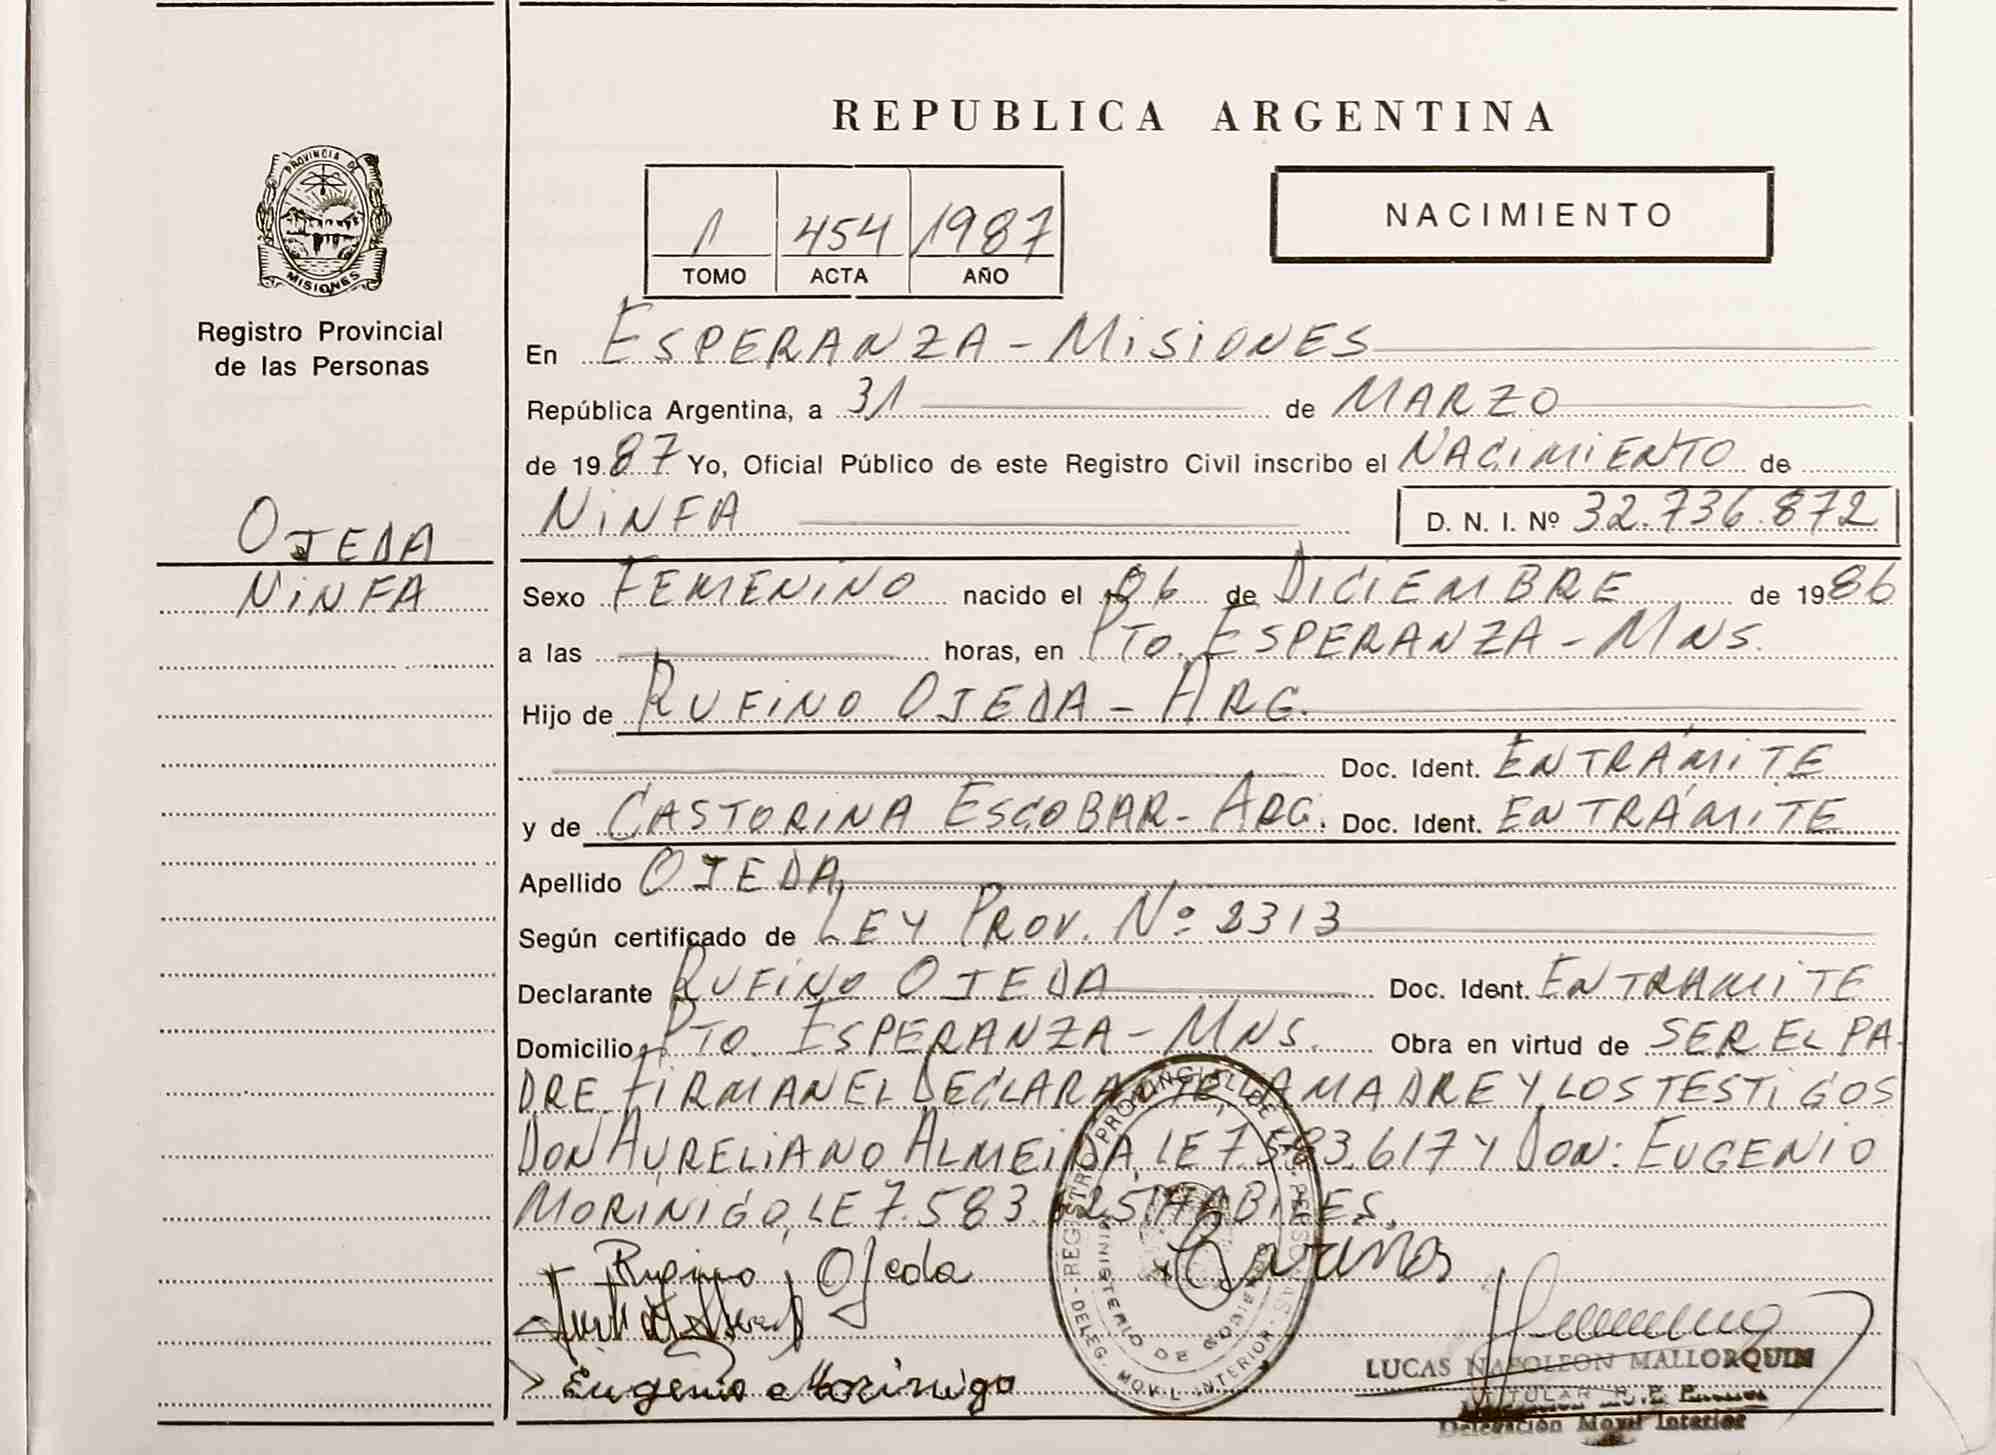 REPUBLICA ARGENTINA
PROVINCIA DE
MISIONES
Registro Provincial
de las Personas
OJEDA
NINFA
1 454 1987
TOMO ACTA AÑO
NACIMIENTO
En ESPERANZA - MISIONES
República Argentina, a 31 de MARZO
de 1987 Yo, Oficial Público de este Registro Civil inscribo el NACIMIENTO de
NINFA D. N. I. Nº 32.736.872
Sexo FEMENINO nacido el 06 de DICIEMBRE de 1986
a las horas, en PTO. ESPERANZA - MNS.
Hijo de RUFINO OJEDA - ARG.
Doc. Ident. EN TRÁMITE
y de CASTORINA ESCOBAR - ARG. Doc. Ident. EN TRÁMITE
Apellido OJEDA
Según certificado de LEY PROV. Nº 2313
Declarante RUFINO OJEDA Doc. Ident. EN TRAMITE
Domicilio PTO. ESPERANZA - MNS. Obra en virtud de SER EL PA
DRE. FIRMAN EL DECLARANTE, LA MADRE Y LOS TESTIGOS
DON AURELIANO ALMEIDA, LE 7.583.617 Y DON: EUGENIO
MORINIGO, LE 7.583.625 HABILES.
Rufino Ojeda
Eugenio Morinigo
REGISTRO PROVINCIAL DE LAS PERSONAS
MINISTERIO DE GOBIERNO
- DELEG. MOVIL INTERIOR -
LUCAS NAPOLEON MALLORQUIN
TITULAR
Delegación Movil Interior